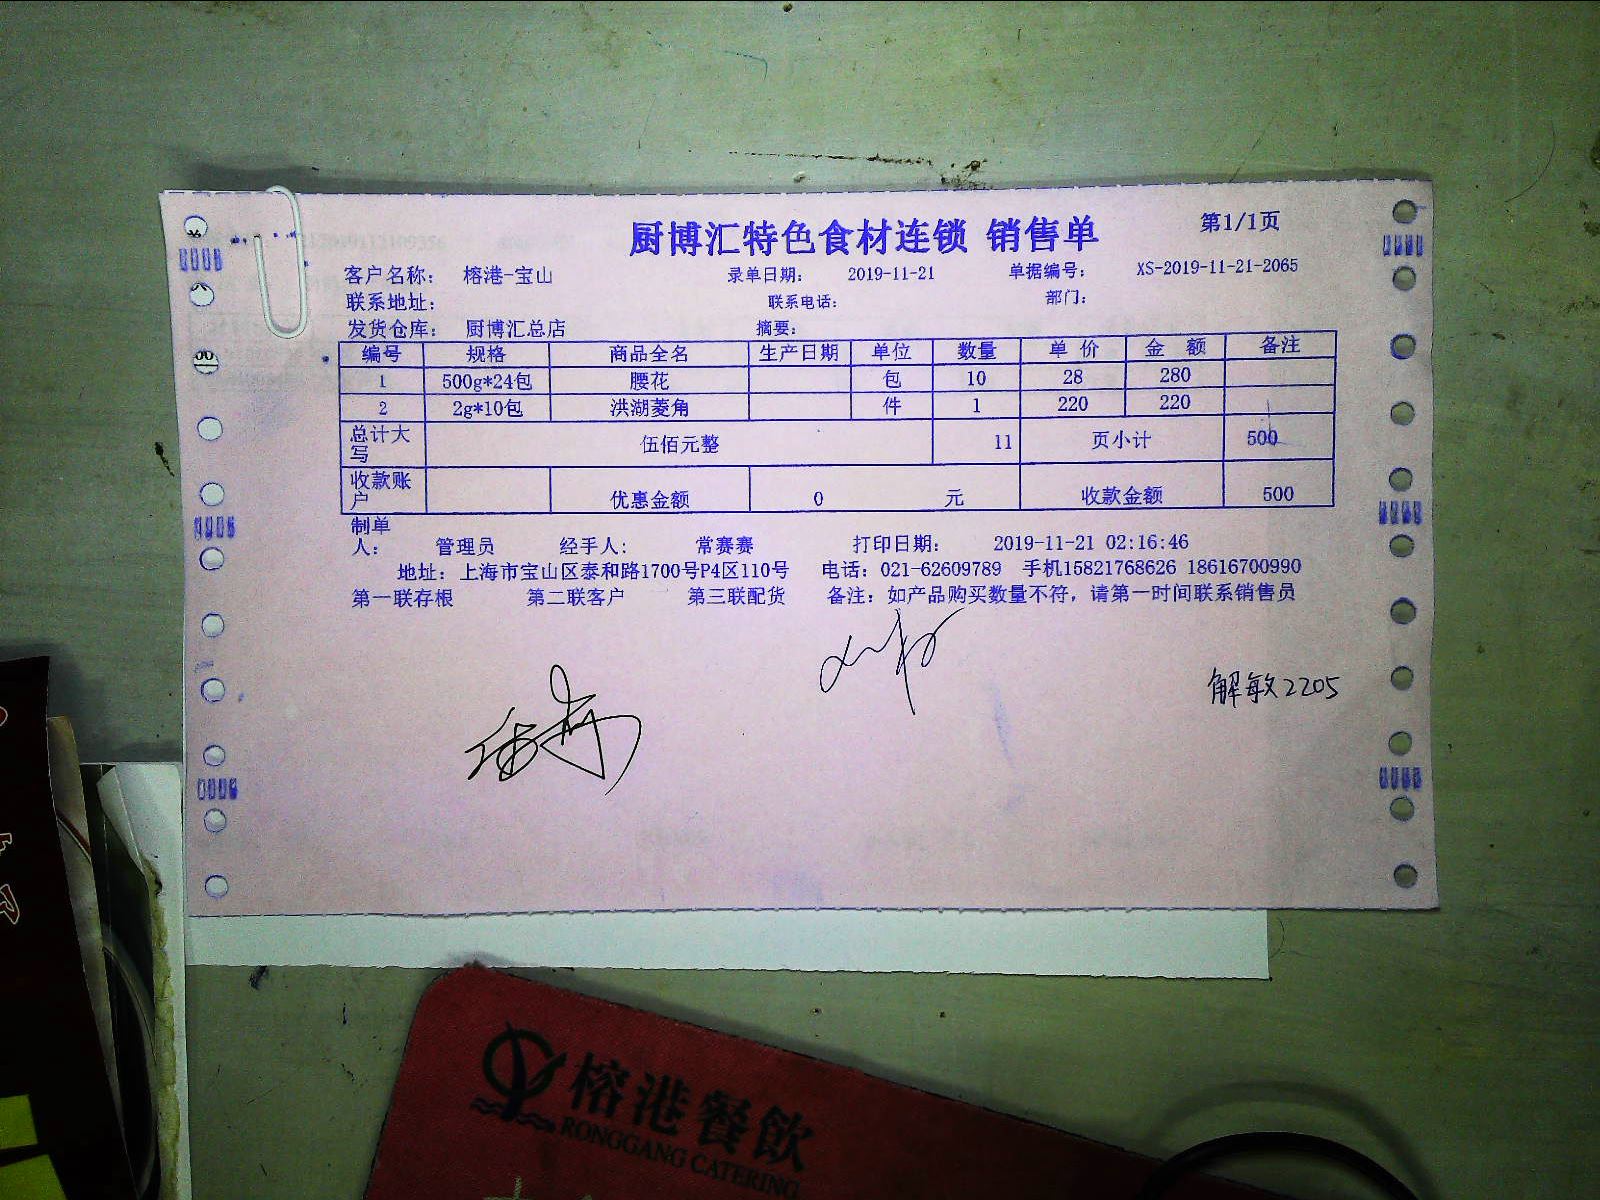 厨博汇特色食材连锁 销售单 第1/1页
客户名称： 榕港-宝山 录单日期： 2019-11-21 单据编号： XS-2019-11-21-2065
联系地址： 联系电话： 部门：
发货仓库： 厨博汇总店 摘要：
编号 规格 商品全名 生产日期 单位 数量 单 价 金 额 备注
1 500g*24包 腰花 包 10 28 280
2 2g*10包 洪湖菱角 件 1 220 220
总计大写 伍佰元整 11 页小计 500
收款账户 优惠金额 0 元 收款金额 500
制单人： 管理员 经手人： 常赛赛 打印日期： 2019-11-21 02:16:46
地址：上海市宝山区泰和路1700号P4区110号 电话：021-62609789 手机15821768626 18616700990
第一联存根 第二联客户 第三联配货 备注：如产品购买数量不符，请第一时间联系销售员
解敏2205
榕港餐飲
RONGGANG CATERING